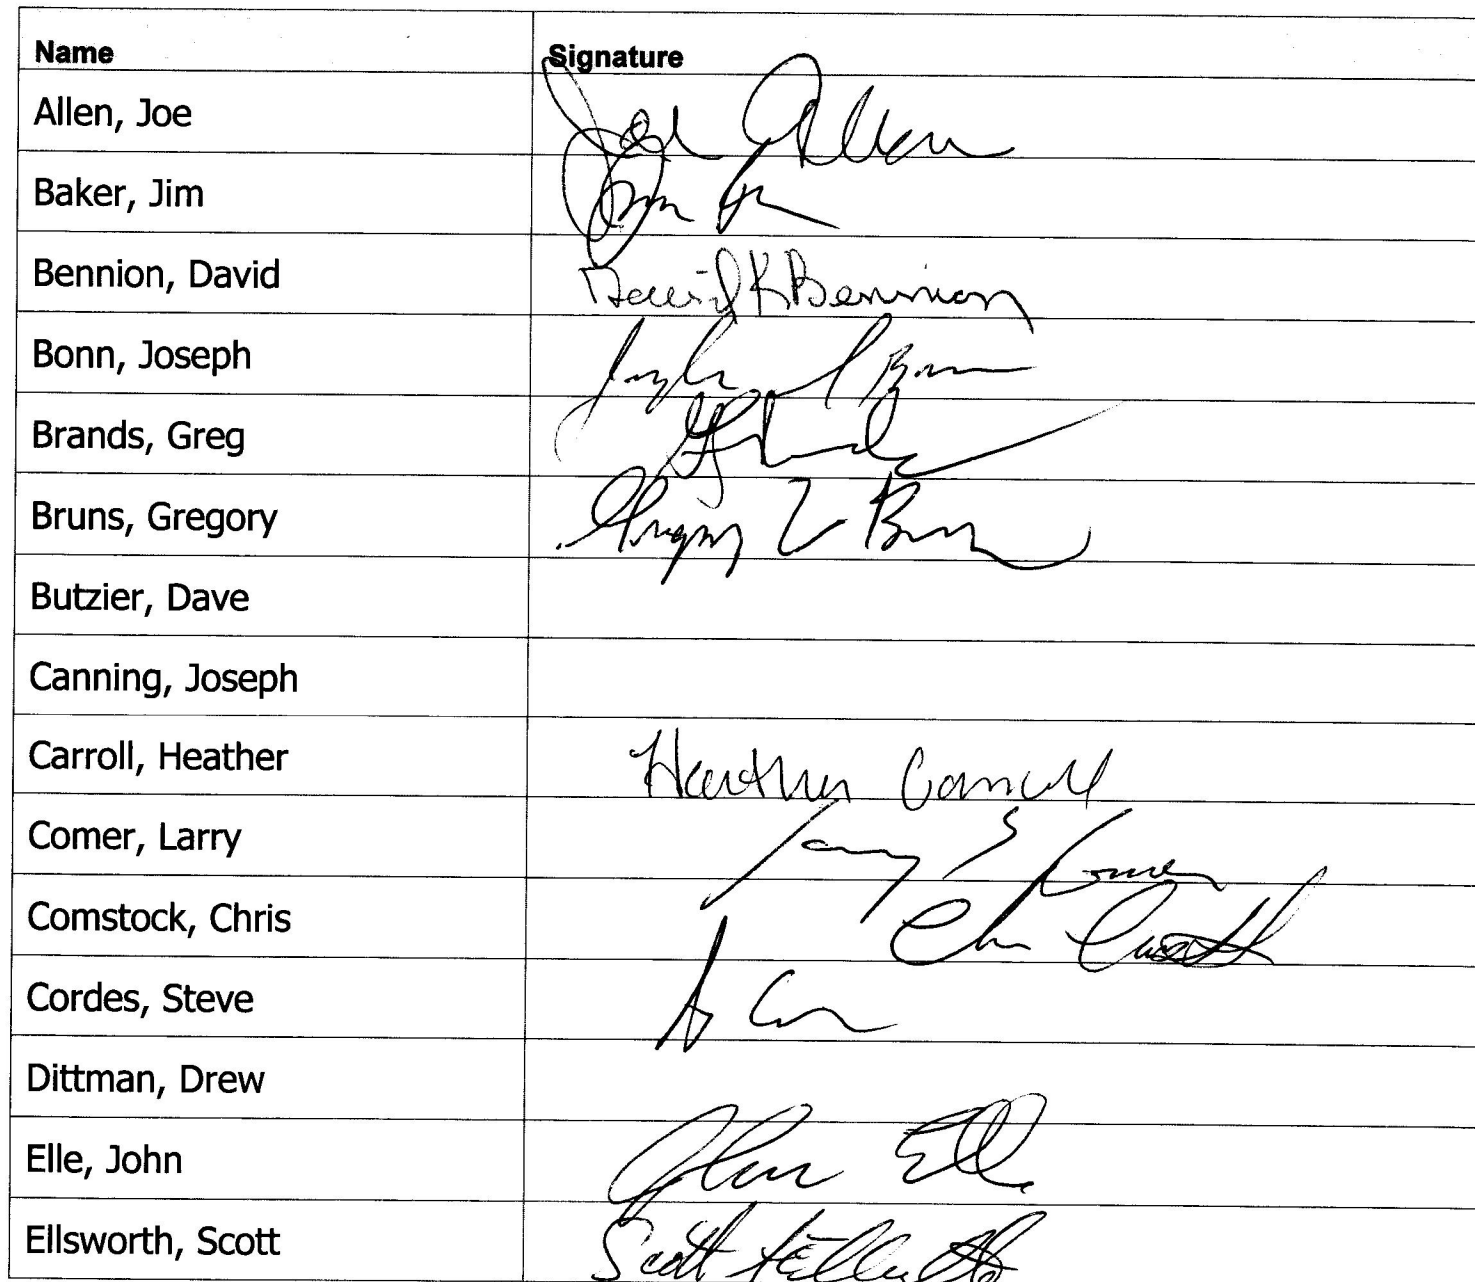 Name Signature
Allen, Joe Joe Allen
Baker, Jim Jim
Bennion, David David K Bennion
Bonn, Joseph Joseph J Bonn
Brands, Greg
Bruns, Gregory Gregory Bruns
Butzier, Dave
Canning, Joseph
Carroll, Heather Heather Carroll
Comer, Larry Larry E Comer
Comstock, Chris Chris
Cordes, Steve
Dittman, Drew
Elle, John John Elle
Ellsworth, Scott Scott Ellsworth